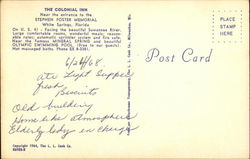 THE COLONIAL INN
Near the entrance to the
STEPHEN FOSTER MEMORIAL
White Springs, Florida
On U. S. 41. Facing the beautiful Suwannee River.
Large comfortable rooms, wonderful meals; reasonable rates; automatic sprinkler system and fire safe.
Near the famous MINERAL SPRING and beautiful
OLYMPIC SWIMMING POOL. (Free to our guests)
Post Card
PLACE
STAMP
HERE
6/26/68
Ate Light Supper
fresh
Biscuits
Old building
Homelike atmosphere
Elderly lady in charge
Copyright 1964, The L. L. Cook Co.